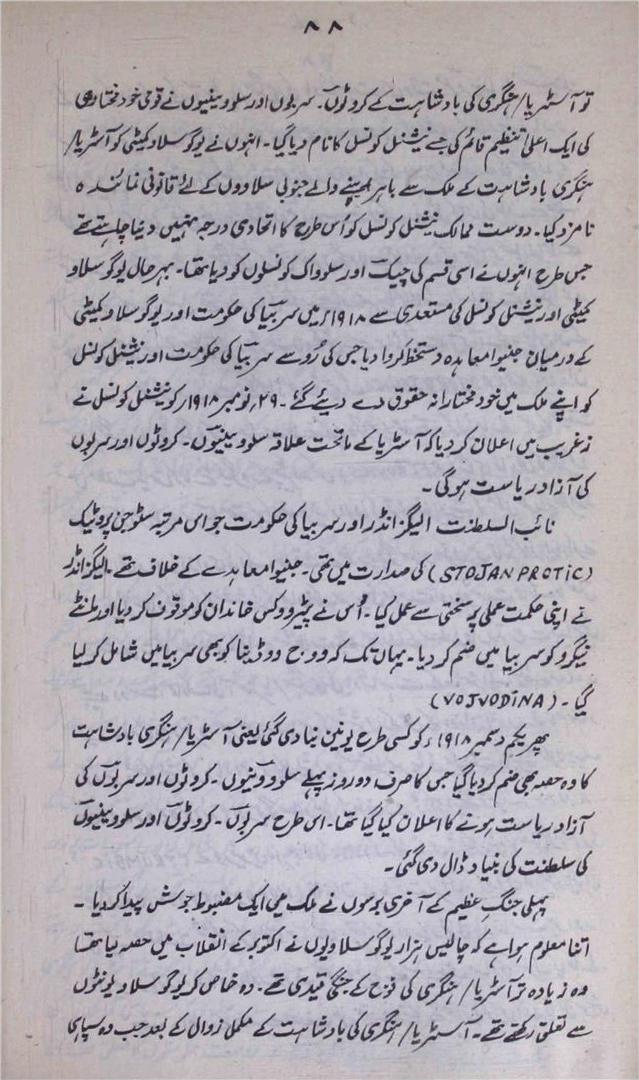 ۸۸
تو آسٹریا/ہنگری کی بادشاہت کے کروٹوں۔ سربوں اور سلووینیوں نے قومی خود مختاری
کی ایک اعلیٰ تنظیم قائم کی جسے نیشنل کونسل کا نام دیا گیا۔ انہوں نے یوگوسلاو کمیٹی کو آسٹریا/
ہنگری بادشاہت کے ملک سے باہر بسنے والے جنوبی سلاووں کے لئے قانونی نمائندہ
نامزد کیا۔ دوست ممالک نیشنل کونسل کو اُس طرح کا اتحادی درجہ نہیں دینا چاہتے تھے
جس طرح انہوں نے اسی قسم کی چیک اور سلوواک کونسلوں کو دیا تھا۔ بہرحال یوگوسلاو
کمیٹی اور نیشنل کونسل کی مستعدی سے ۱۹۱۸ء میں سربیا کی حکومت اور یوگوسلاو کمیٹی
کے درمیان جنیوا معاہدہ دستخط کروا دیا جس کی رُو سے سربیا کی حکومت اور نیشنل کونسل
کو اپنے ملک میں خود مختارانہ حقوق دے دیئے گئے۔ ۲۹، نومبر ۱۹۱۸ء کو نیشنل کونسل نے
زغریب میں اعلان کر دیا کہ آسٹریا کے ماتحت علاقہ سلووینیوں۔ کروٹوں اور سربوں
کی آزاد ریاست ہوگی۔
نائب السلطنت الیگزانڈر اور سربیا کی حکومت جو اس مرتبہ سٹوجن پروٹیک
(STOJAN PROTIC) کی صدارت میں تھی۔ جنیوا معاہدے کے خلاف تھے۔ الیگزانڈر
نے اپنی حکمت عملی پر سختی سے عمل کیا۔ اُس نے پیٹرووکس خاندان کو موقوف کر دیا اور مانٹے
نیگرو کو سربیا میں ضم کر دیا۔ یہاں تک کہ ووج ووڈینا کو بھی سربیا میں شامل کر لیا
گیا۔ (VOJVODINA)
پھر یکم دسمبر ۱۹۱۸ء کو کسی طرح یونین بنا دی گئی یعنی آسٹریا/ہنگری بادشاہت
کا وہ حصہ بھی ضم کر دیا گیا جس کا صرف دو روز پہلے سلووینیوں۔ کروٹوں اور سربوں کی
آزاد ریاست ہونے کا اعلان کیا گیا تھا۔ اس طرح سربوں۔ کروٹوں اور سلووینیوں
کی سلطنت کی بنیاد ڈال دی گئی۔
پہلی جنگ عظیم کے آخری برسوں نے ملک میں ایک مضبوط جوش پیدا کر دیا۔
اتنا معلوم ہوا ہے کہ چالیس ہزار یوگوسلاویوں نے اکتوبر کے انقلاب میں حصہ لیا تھا
وہ زیادہ تر آسٹریا/ہنگری کی فوج کے جنگی قیدی تھے۔ وہ خاص کر یوگوسلاو یونٹوں
سے تعلق رکھتے تھے۔ آسٹریا/ہنگری کی بادشاہت کے مکمل زوال کے بعد جب وہ سپاہی